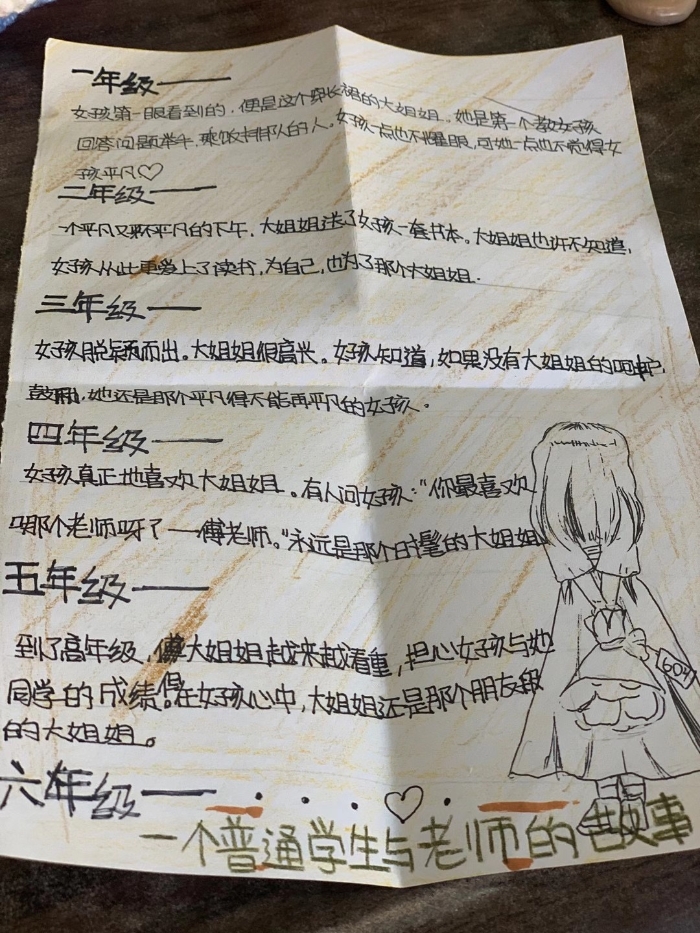 一年级——
女孩第一眼看到的，便是这个穿长裙的大姐姐。她是第一个教女孩
回答问题举手，乘饭排队的人。女孩一点也不耀眼，可她一点也不觉得女
孩平凡♡
二年级——
一个平凡又不平凡的下午，大姐姐送了女孩一套书本。大姐姐也许不知道，
女孩从此更爱上了读书，为自己，也为了那个大姐姐.
三年级——
女孩脱颖而出。大姐姐很高兴。女孩知道，如果没有大姐姐的呵护，
鼓励，她还是那个平凡得不能再平凡的女孩。
四年级——
女孩真正地喜欢大姐姐。有人问女孩：“你最喜欢
哪个老师呀？——傅老师。”永远是那个时髦的大姐姐
五年级——
到了高年级，大姐姐越来越看重，担心女孩与她
同学的成绩。但在女孩心中，大姐姐还是那个朋友般
的大姐姐。
六年级——····♡·
一个普通学生与老师的故事
60分